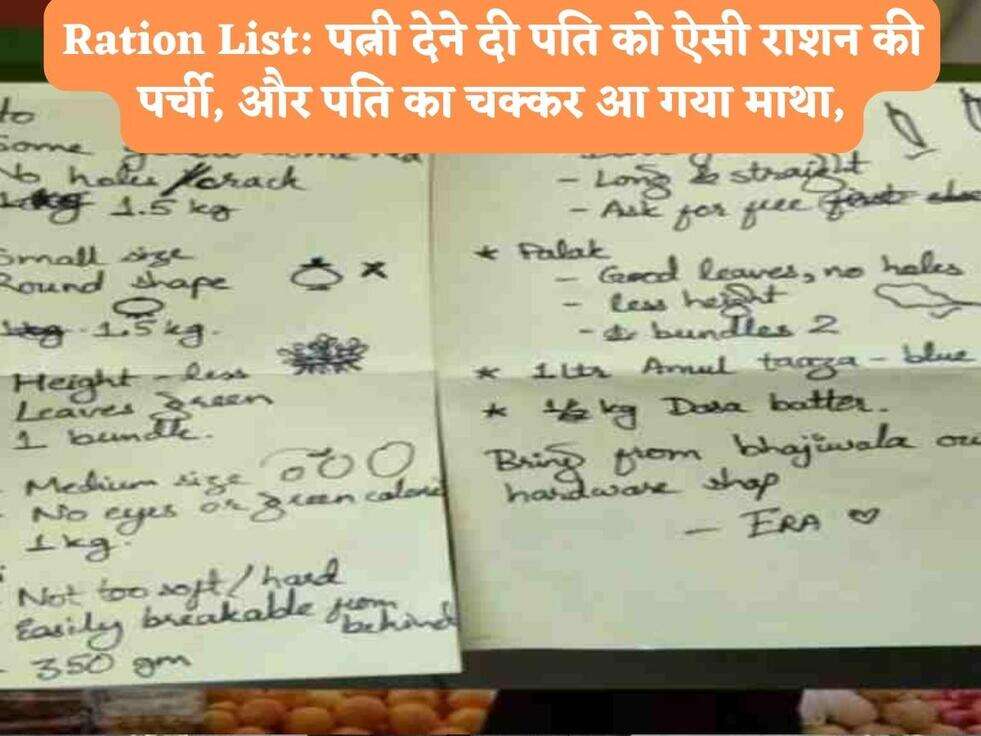 Ration List: पत्नी देने दी पति को ऐसी राशन की
पर्ची, और पति का चक्कर आ गया माथा,
to
Some
No holes/crack
1 kg 1.5 kg
Small size
Round shape
1kg - 1.5 kg.
Height - less
Leaves green
1 bundle.
- Medium size
- No eyes or green
1 kg.
Not too soft / hard
Easily breakable from
behind
- 350 gm
- Long & straight
- Ask for free
* Palak
- Good leaves, no holes
- less height
- bundles 2
* 1 Ltr Amul taaza - blue
* 1/2 kg Dosa batter.
Bring from bhajiwala
hardware shop
- ERA ♡